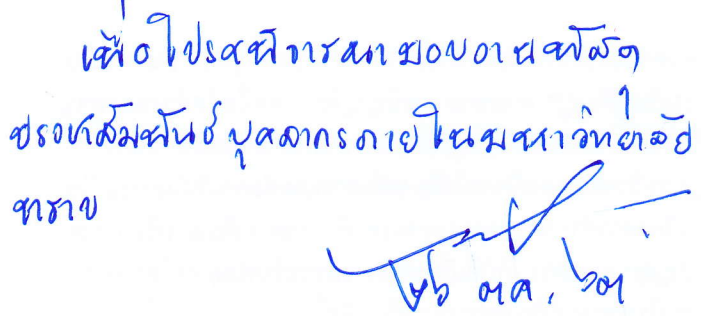 เพื่อโปรดพิจารณามอบงานพัสดุ
ประชาสัมพันธ์บุคลากรภายในมหาวิทยาลัย
ทราบ
๒๖ ตค. ๖๓